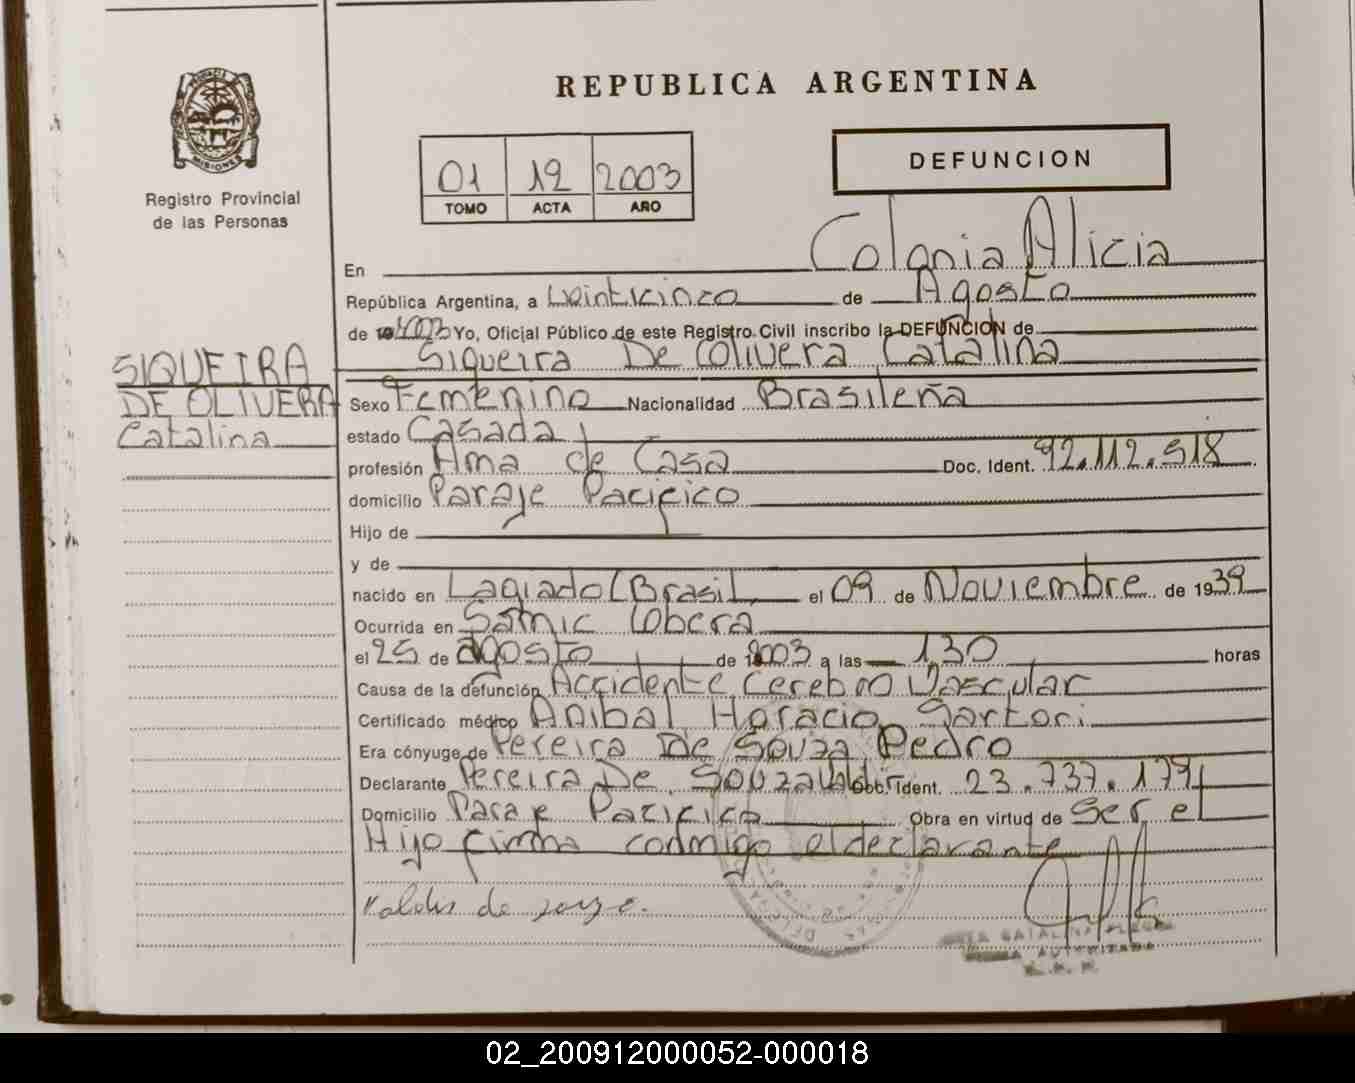 REPUBLICA ARGENTINA
MISIONES
Registro Provincial
de las Personas
01 12 2003
TOMO ACTA AÑO
DEFUNCION
En Colonia Alicia
República Argentina, a Veinticinco de Agosto
de 2003 Yo, Oficial Público de este Registro Civil inscribo la DEFUNCION de
Siqueira De Olivera Catalina
SIQUEIRA
DE OLIVERA
Catalina
Sexo Femenino Nacionalidad Brasileña
estado Casada
profesión Ama de Casa Doc. Ident. 92.112.518
domicilio Paraje Pacifico
Hijo de
y de
nacido en Lagiado (Brasil el 09 de Noviembre de 1939
Ocurrida en Samic Obera
el 25 de agosto de 2003 a las 1,30 horas
Causa de la defunción Accidente Cerebro Vascular
Certificado médico Anibal Horacio Sartori
Era cónyuge de Pereira De Souza Pedro
Declarante Pereira De Souza Valdir Doc. Ident. 23.737.179
Domicilio Paraje Pacifico Obra en virtud de Ser el
Hijo firma conmigo el declarante
de souza.
CATALINA
AUTORIZADA
02_200912000052-000018